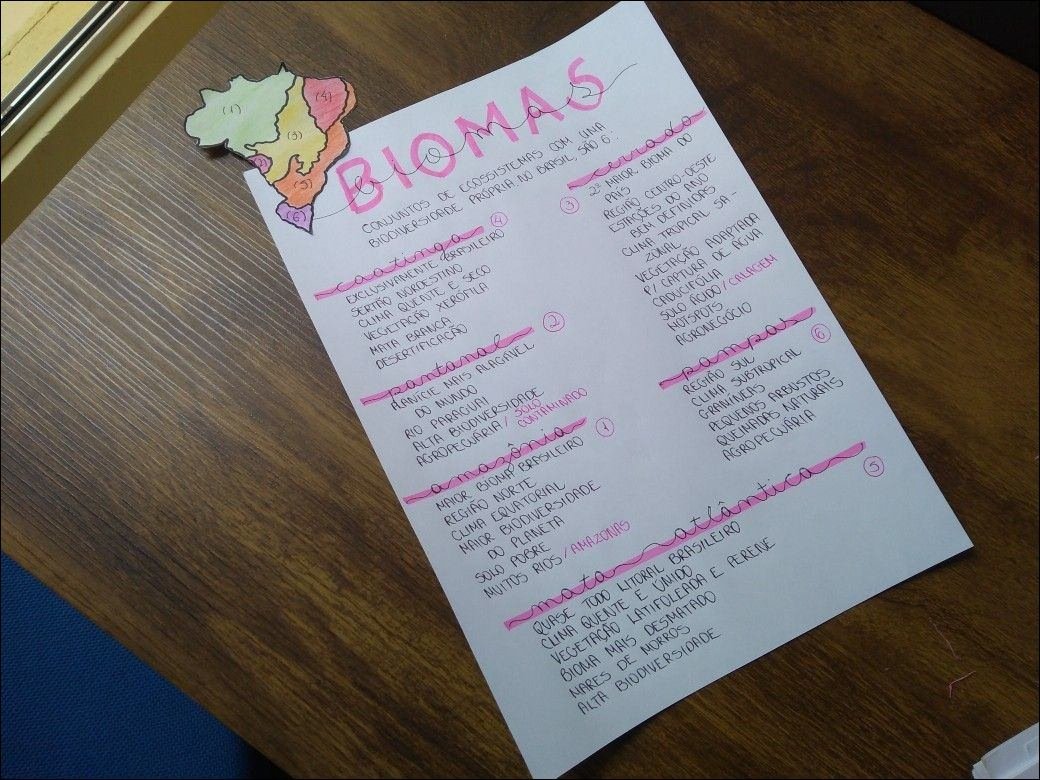 (1)
(4)
(3)
(2)
(5)
(6)
BIOMAS
biomas
CONJUNTOS DE ECOSSISTEMAS COM UMA
BIODIVERSIDADE PRÓPRIA. NO BRASIL, SÃO 6:
caatinga 4
EXCLUSIVAMENTE BRASILEIRO
SERTÃO NORDESTINO
CLIMA QUENTE E SECO
VEGETAÇÃO XERÓFILA
MATA BRANCA
DESERTIFICAÇÃO
pantanal 2
PLANÍCIE MAIS ALAGÁVEL
DO MUNDO
RIO PARAGUAI
ALTA BIODIVERSIDADE
AGROPECUÁRIA / SOLO
CONTAMINADO
amazônia 1
MAIOR BIOMA BRASILEIRO
REGIÃO NORTE
CLIMA EQUATORIAL
MAIOR BIODIVERSIDADE
DO PLANETA
SOLO POBRE
MUITOS RIOS / AMAZONAS
3 cerrado
2º MAIOR BIOMA DO
PAÍS
REGIÃO CENTRO-OESTE
ESTAÇÕES DO ANO
BEM DEFINIDAS
CLIMA TROPICAL SA-
ZONAL
VEGETAÇÃO ADAPTADA
P/ CAPTURA DE ÁGUA
CADUCIFÓLIA
SOLO ÁCIDO / CALAGEM
HOTSPOTS
AGRONEGÓCIO
pampas 6
REGIÃO SUL
CLIMA SUBTROPICAL
GRAMÍNEAS
PEQUENOS ARBUSTOS
QUEIMADAS NATURAIS
AGROPECUÁRIA
mata atlântica 5
QUASE TODO LITORAL BRASILEIRO
CLIMA QUENTE E ÚMIDO
VEGETAÇÃO LATIFOLEADA E PERENE
BIOMA MAIS DESMATADO
MARES DE MORROS
ALTA BIODIVERSIDADE